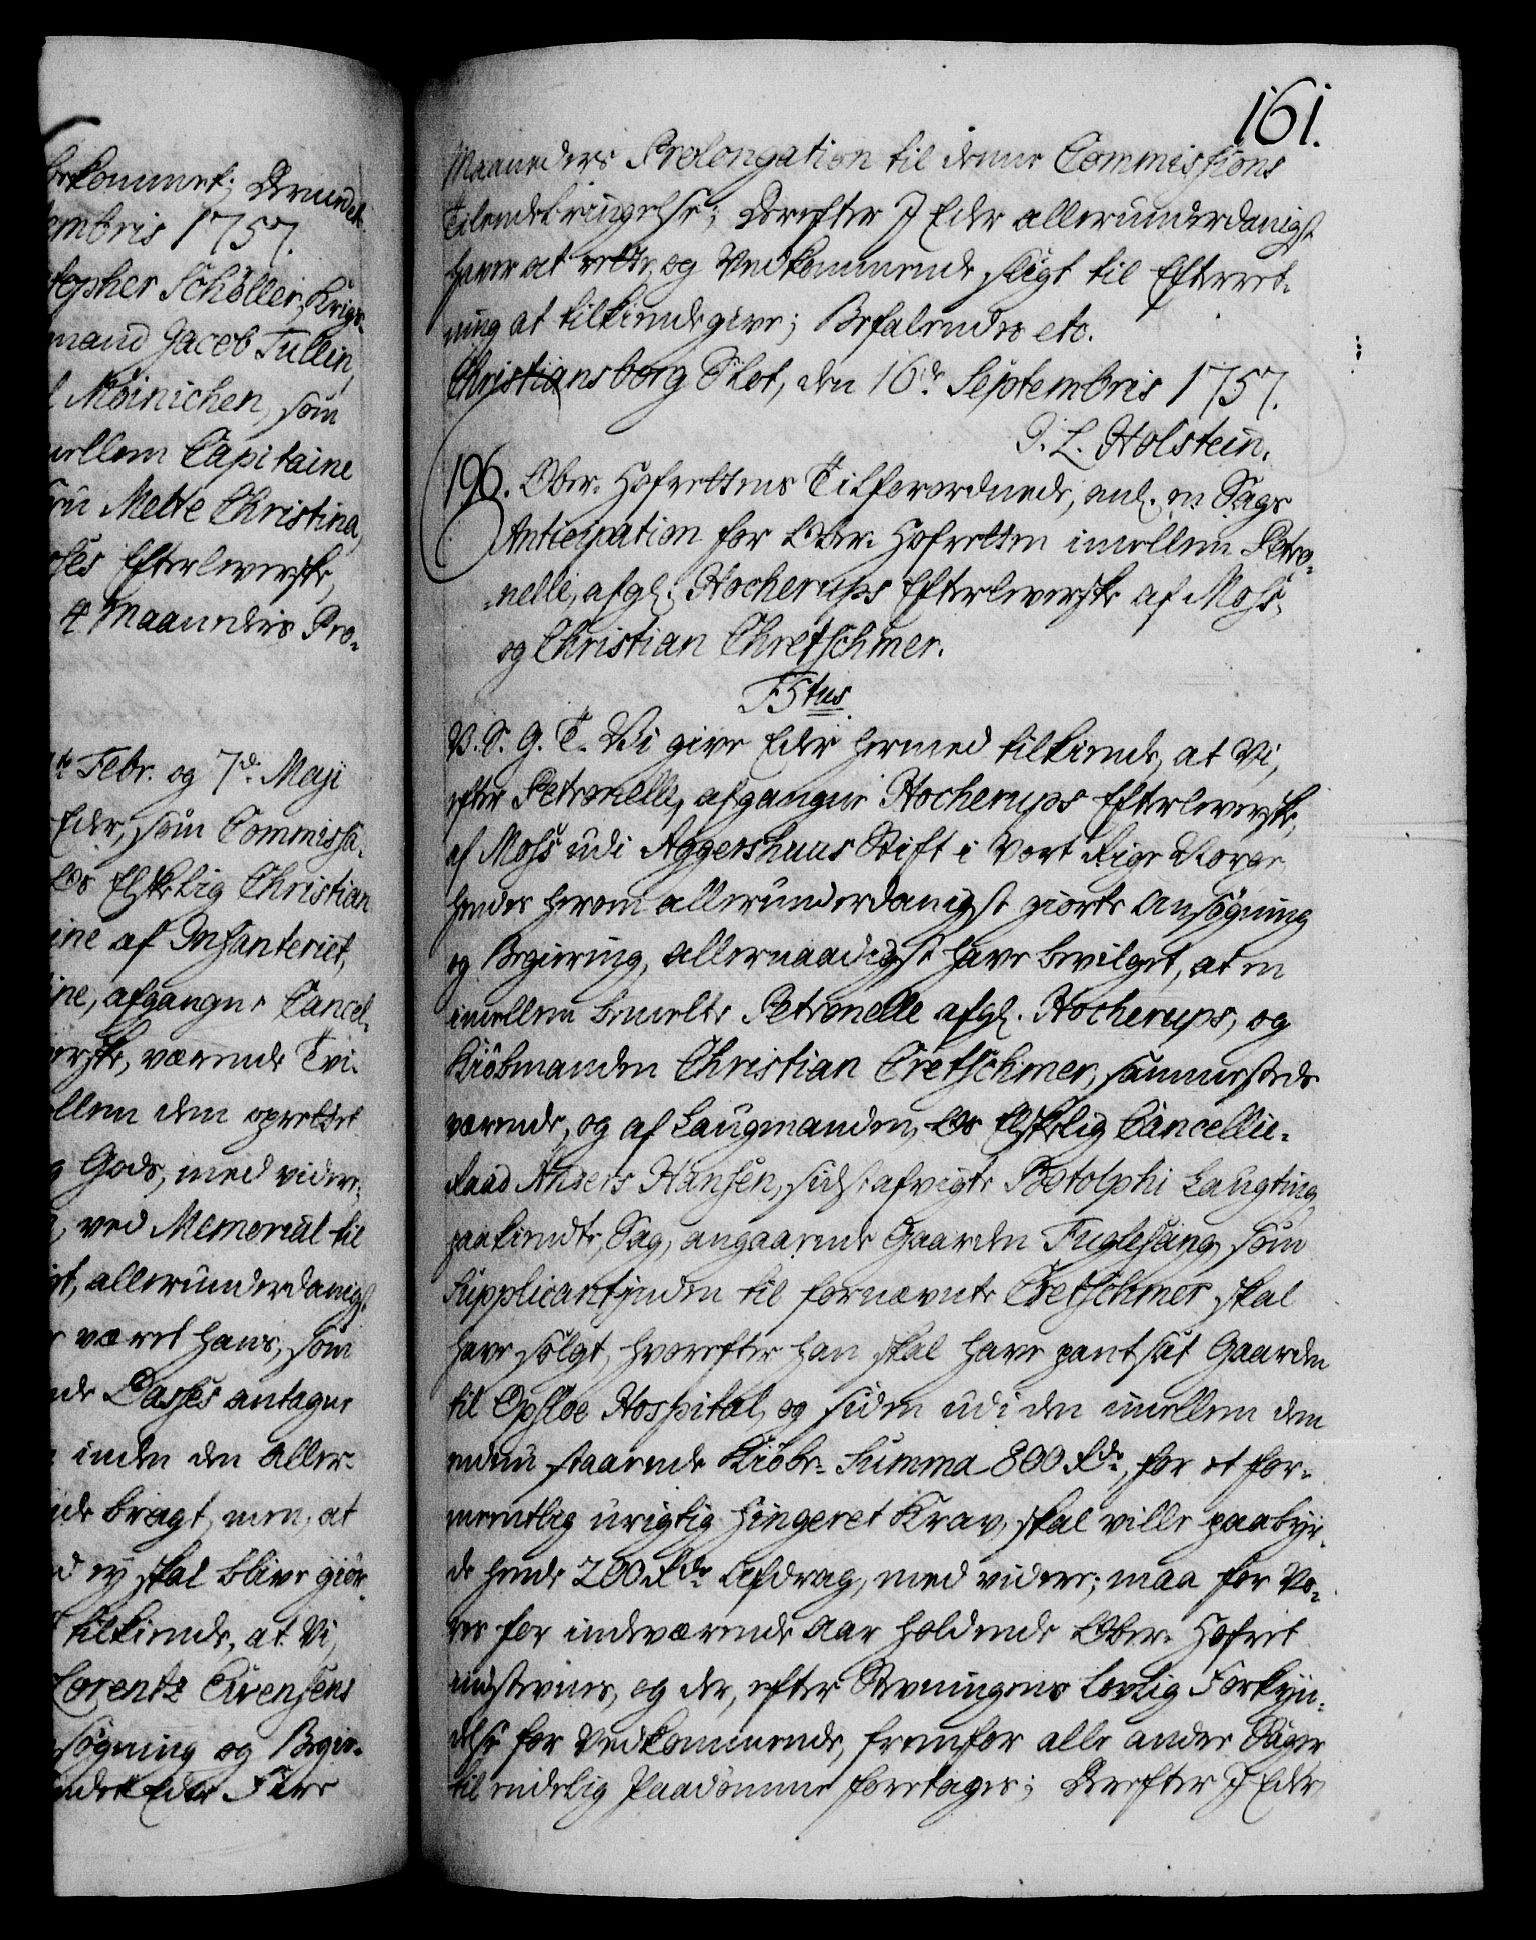 bekommet; Brundet
embris 1757.
topher Schöller, Krigs-
mand Jacob Tullin,
Möinichen, som
mellem Capitaine
Fru Mette Christina,
Efterleverske,
4 Maaneders Pro-
Febr. og 7de Maji
Eder, som Commissa-
Os Elskelig Christian
ine af Infanteriet,
ine, afgangne Cancel-
erske, værende Tvi-
ellem dem oprettet
g Gods, med videre,
, ved Memorial til
gt, allerunderdanigst
r været hans, som
nde Dasses antagne
inden den Aller-
nde bragt, men, at
d ey skal blive giør-
tilkiende, at Vi,
Lorentz Arensens
søgning og Begie-
ndet Eder Fire
161.
Maaneders Prolongation til denne Commissions
Tilendebringelse; Derefter I Eder allerunderdanigst
haver at rette, og Vedkommende sligt til Efterret-
ning at tilkiendegive; Befalendes etc.
Christiansborg Slot, den 16de Septembris 1757.
J. L. Holstein.
196. Ober-Hofrettens Tilforordnede, anl. en Sags
Anticipation for Ober-Hofretten imellem Petro-
nelle, afgl. Hocherups Efterleverske af Moss,
og Christian Chretschmer.
F5tus
V. S. G. T. Vi give Eder hermed tilkiende, at Vi,
efter Petronelle, afgangne Hocherups Efterleverske,
af Moss udi Aggershuus Stift i Vort Rige Norge
hendes herom allerunderdanigst giorte Ansøgning
og Begiering, allernaadigst have bevilget, at en
imellem bemelte Petronelle afgl. Hocherups, og
Kiöbmanden Christian Cretschmer, sammesteds
værende, og af Laugmanden, Os Elskelig Cancellie-
Raad Anders Hansen, sidstafvigte Botolphi Laugting
paakiendte, Sag, angaaende Gaarden Fuglesang, som
Supplicantinden til fornævnte Cretschmer skal
have solgt, hvorefter han skal have pantsat Gaarden
til Opsloe Hospital, og siden udi den imellem dem
endnu staaende Kiöbe-Summa 800 Rdr, for et for-
meentlig urigtig fingeret Krav, skal ville paabyr-
de hende 200 Rdr Afdrag, med videre; maa for Vo-
res for indeværende Aar holdende Ober-Hofret
indstevnes, og der, efter Stevningens lovlig Forkyn-
delse for Vedkommende, fremfor alle andre Sager
til endelig Paadømme foretages; Derefter I Eder